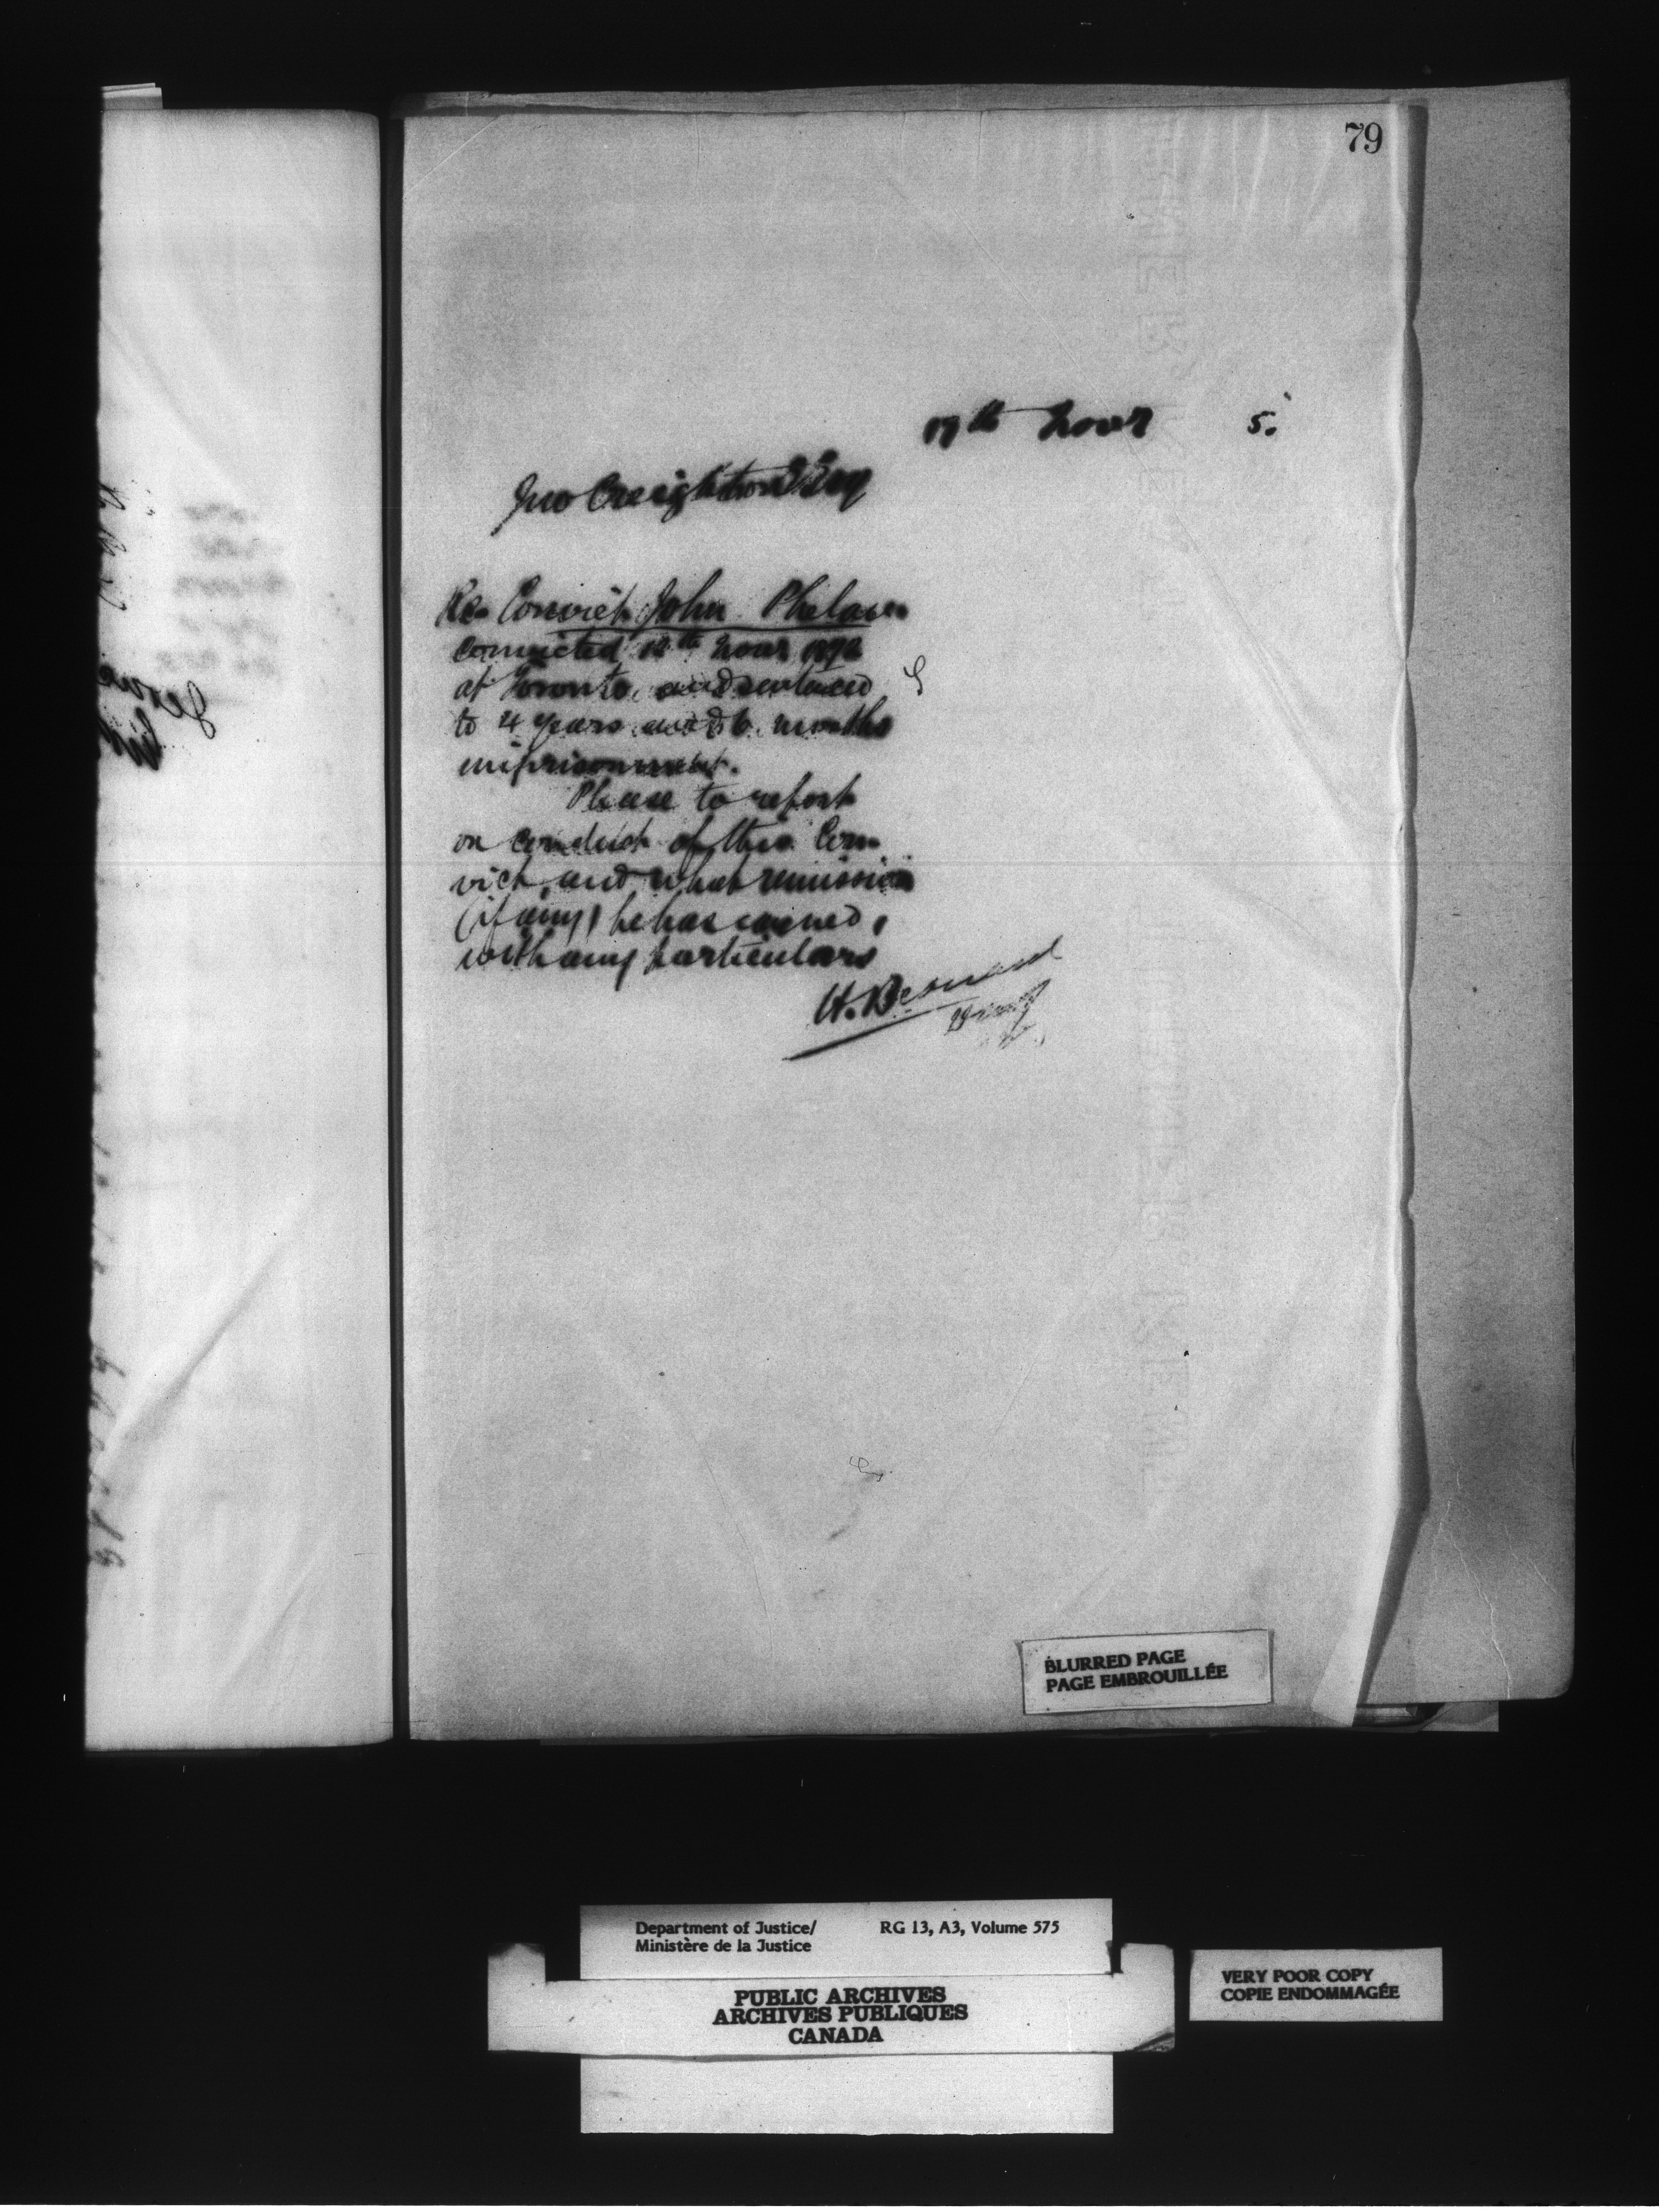 79
17th Novr 5.
Jno Creighton Esq
Re Convict John Phelan
Convicted 12th Novr 1872
at Toronto and sentenced
to 4 years and 6 months
imprisonment.
Please to report
on conduct of this Con
vict, and what remission
(if any) he has earned,
with any particulars
H. Bernard
BLURRED PAGE
PAGE EMBROUILLÉE
Department of Justice/ RG 13, A3, Volume 575
Ministère de la Justice
PUBLIC ARCHIVES
ARCHIVES PUBLIQUES
CANADA
VERY POOR COPY
COPIE ENDOMMAGÉE